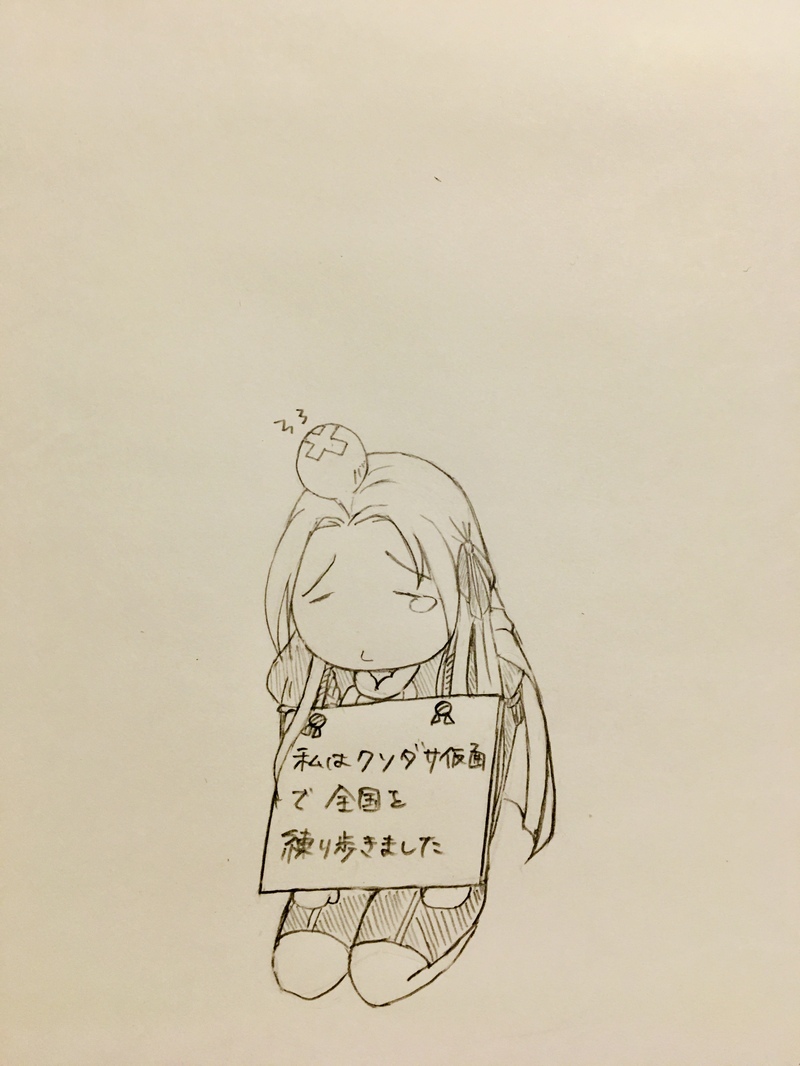 ろろ
私はクソダサ仮面
で全国を
練り歩きました